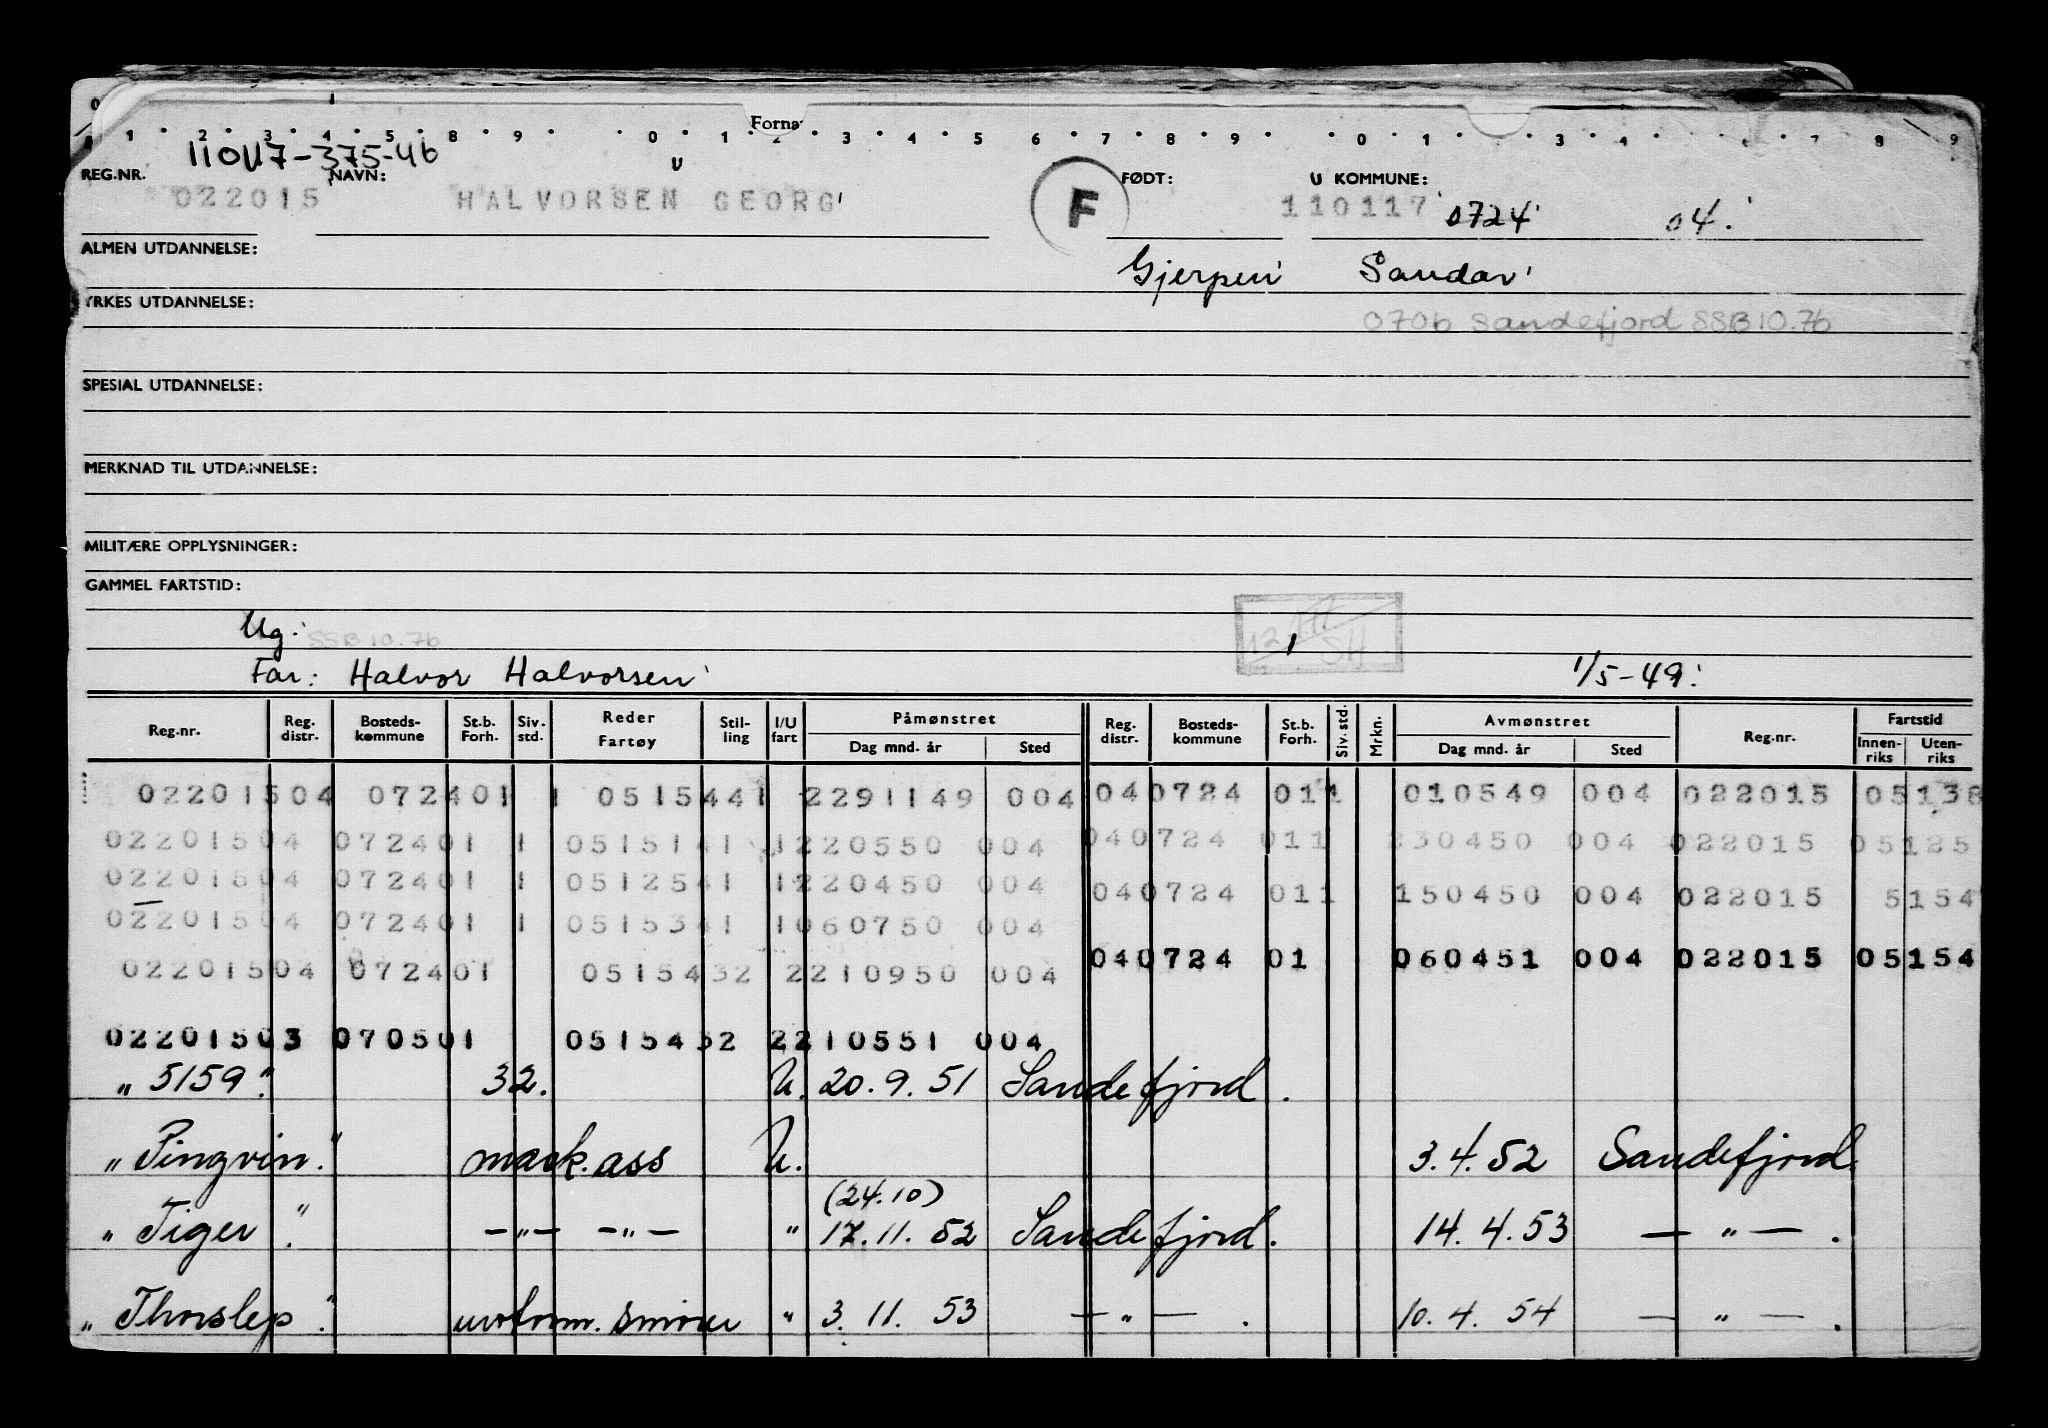 Forna
1 2 3 4 5 8 9 0 1 2 3 4 5 6 7 8 9 0 1 3 4 7 8 9
110117-375-46
REG.NR. NAVN: FØDT: U KOMMUNE:
022015 HALVORSEN GEORG F 110117 0724 04.
ALMEN UTDANNELSE: Gjerpen Sandar
YRKES UTDANNELSE: 0706 Sandefjord SSB 10.76
SPESIAL UTDANNELSE:
MERKNAD TIL UTDANNELSE:
MILITÆRE OPPLYSNINGER:
GAMMEL FARTSTID:
Ug. SSB 10.76
Far: Halvor Halvorsen 1/5-49.
Reg.nr. Reg. distr. Bosteds-kommune St.b. Forh. Siv. std. Reder Fartøy Stil-ling I/U fart Påmønstret Dag mnd. år Sted Reg. distr. Bosteds-kommune St.b. Forh. Siv. std. Mrkn. Avmønstret Dag mnd. år Sted Reg.nr. Fartstid Innen-riks Uten-riks
02201504 072401 1 0515441 2291149 004 040724 011 010549 004 022015 05138
02201504 072401 1 0515141 1220550 004 040724 011 230450 004 022015 05125
02201504 072401 1 0512541 1220450 004 040724 011 150450 004 022015 5154
02201504 072401 1 0515341 1060750 004
02201504 072401 0515432 2210950 004 040724 01 060451 004 022015 05154
02201503 070501 0515432 2210551 004
„5159." 32. U. 20.9.51 Sandefjord.
„Pingvin." mask.ass U. 3.4.52 Sandefjord.
(24.10)
„Tiger." —"— —"— " 17.11.52 Sandefjord. 14.4.53 —"—.
„Thorslep." smører " 3.11.53 —"—. 10.4.54 —"—.